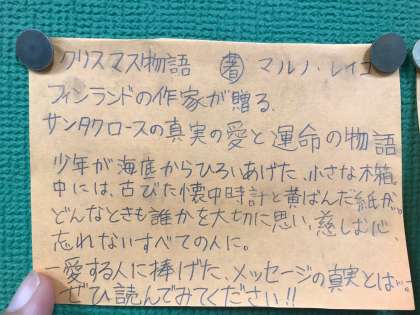 クリスマス物語 著 マルノ・レイコ
フィンランドの作家が贈る、
サンタクロースの真実の愛と運命の物語
少年が海底からひろいあげた、小さな木箱
中には、古びた懐中時計と黄ばんだ紙が。
どんなときも誰かを大切に思い、慈しむ心、
忘れないすべての人に。
―愛する人に捧げた、メッセージの真実とは…
ぜひ読んでみてください!!